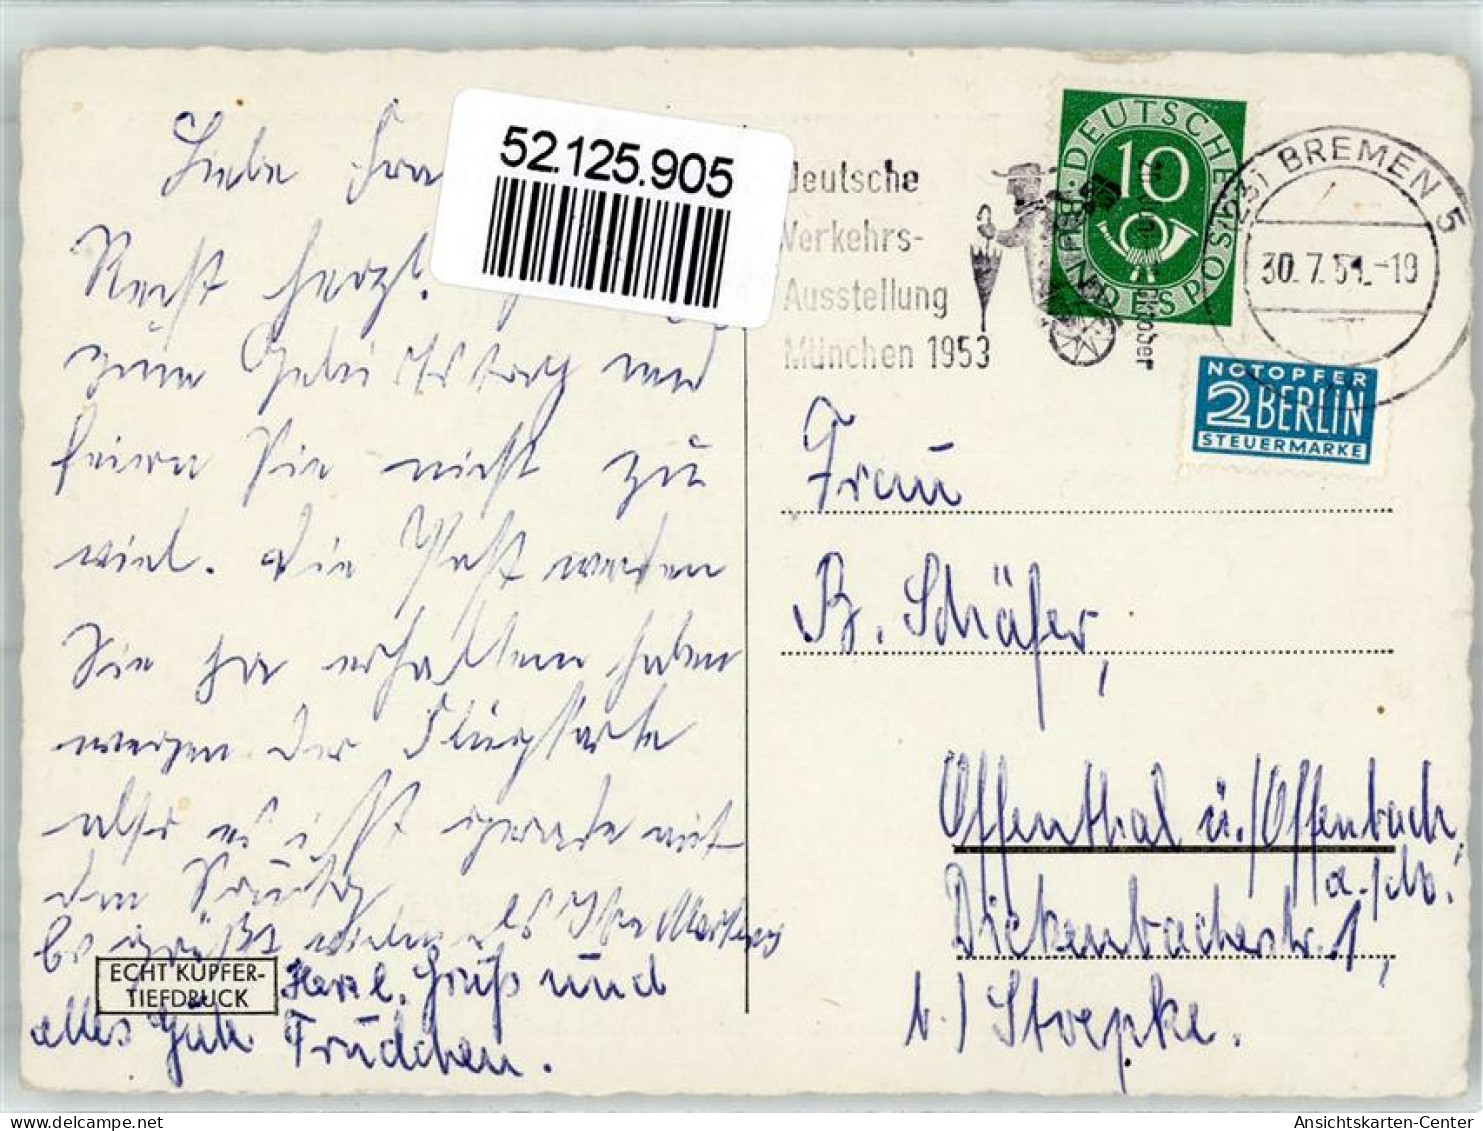 Liebe Frau
52.125.905
Recht herzl.
zum Geburtstag und
feiern Sie nicht zu
viel. Die Post werden
Sie ja erhalten haben
wegen der Flugkarte
also es ist gerade mit
den
Es grüßt vielmals Ihre
Herzl. Gruß und
alles Gute Trudchen.
ECHT KUPFER-
TIEFDRUCK
Deutsche
Verkehrs-
Ausstellung
München 1953
Oktober
DEUTSCHE BUNDESPOST
10
(23) BREMEN 5
30.7.51.-19
NOTOPFER
2 BERLIN
STEUERMARKE
Frau
B. Schäfer,
Offenthal ü./Offenbach
a./M.
Dickenbacherstr. 1,
b./ Stoepke.
Ansichtskarten-Center
www.delcampe.net